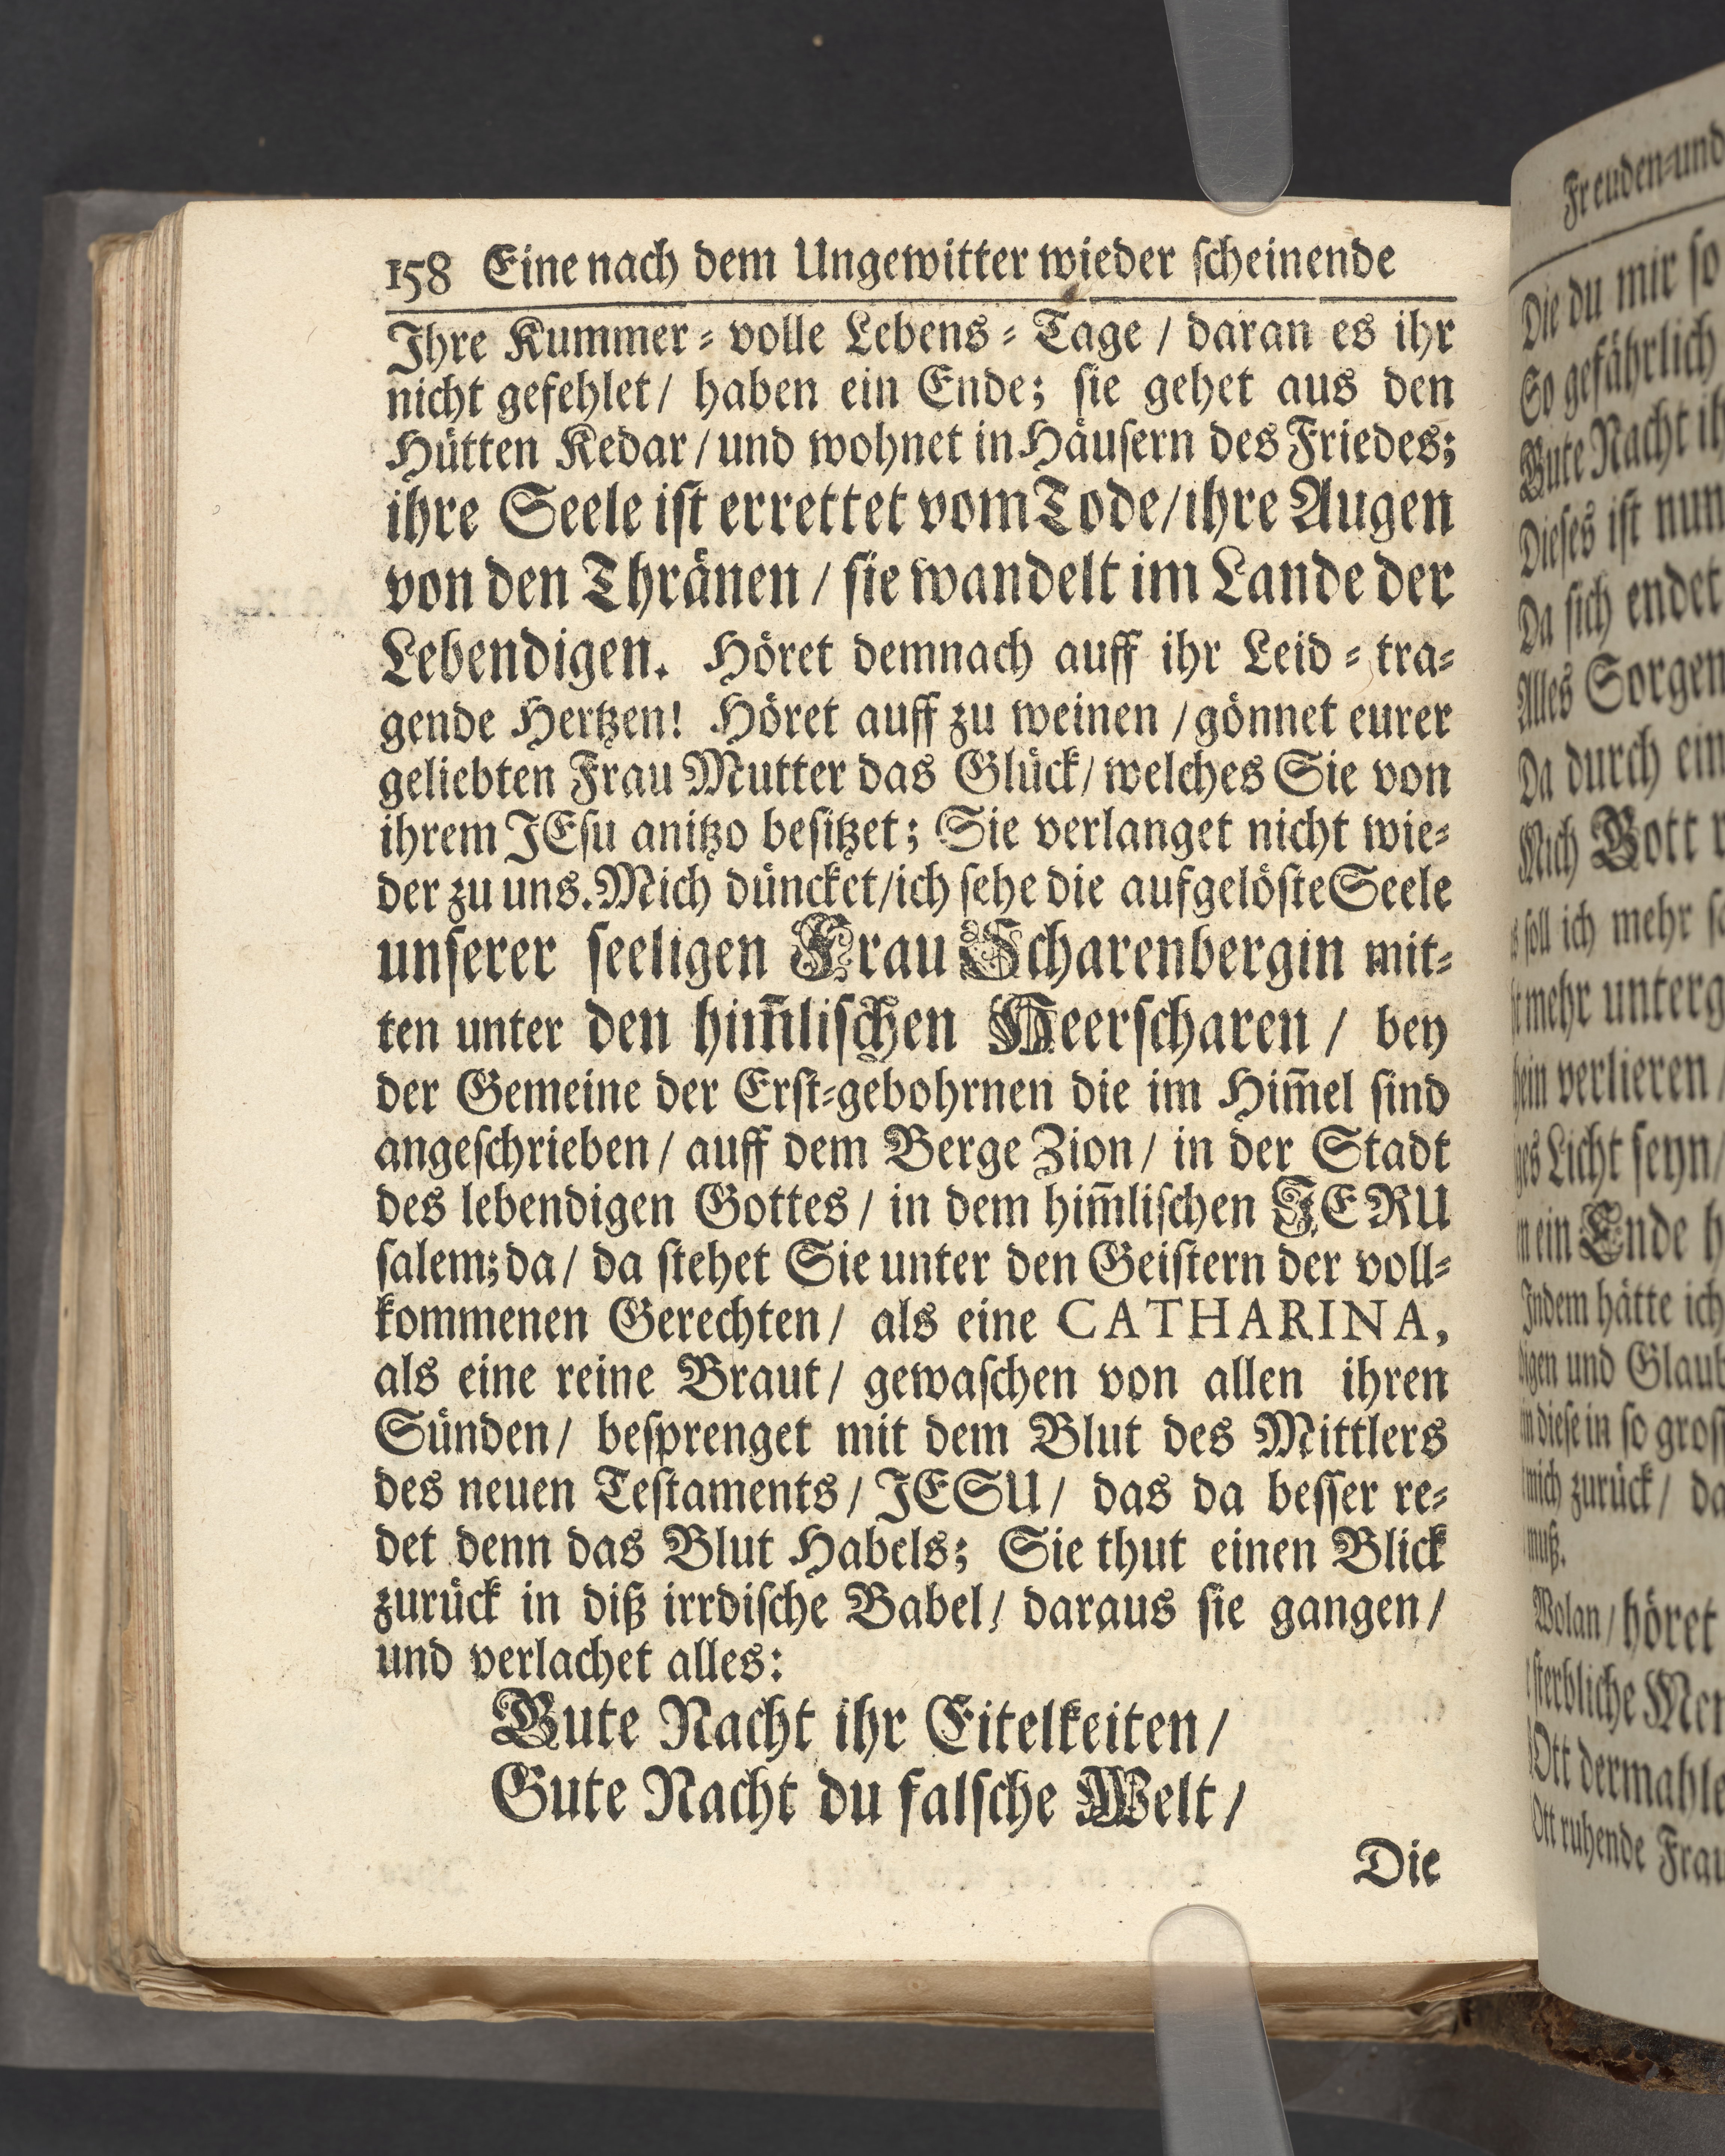 158 Eine nach dem Ungewitter wieder scheinende
Ihre Kummer-volle Lebens-Tage / daran es ihr
nicht gefehlet / haben ein Ende; sie gehet aus den
Hütten Kedar / und wohnet in Häusern des Friedes;
ihre Seele ist errettet vom Tode / ihre Augen
von den Thränen / sie wandelt im Lande der
Lebendigen. Höret demnach auff ihr Leid-tra-
gende Hertzen! Höret auff zu weinen / gönnet eurer
geliebten Frau Mutter das Glück / welches Sie von
ihrem JEsu anitzo besitzet; Sie verlanget nicht wie-
der zu uns. Mich düncket / ich sehe die aufgelöste Seele
unserer seeligen Frau Scharenbergin mit-
ten unter den him̃lischen Heerscharen / bey
der Gemeine der Erst-gebohrnen die im Him̃el sind
angeschrieben / auff dem Berge Zion / in der Stadt
des lebendigen Gottes / in dem him̃lischen JERU
salem; da / da stehet Sie unter den Geistern der voll-
kommenen Gerechten / als eine CATHARINA,
als eine reine Braut / gewaschen von allen ihren
Sünden / besprenget mit dem Blut des Mittlers
des neuen Testaments / JESU / das da besser re-
det denn das Blut Habels; Sie thut einen Blick
zurück in diß irrdische Babel / daraus sie gangen /
und verlachet alles:
Gute Nacht ihr Eitelkeiten /
Gute Nacht du falsche Welt /
Die
Freuden-und
Die du mir so
So gefährlich
Gute Nacht ih
Dieses ist nun
Da sich endet
Alles Sorgen
Da durch ein
Mich Gott
soll ich mehr
mehr unterg
verlieren /
Licht seyn /
ein Ende h
Indem hätte ich
und Glaub
diese in so gros
mich zurück / da
muß.
Wolan / höret
sterbliche Men
Ott dermahle
Ott ruhende Frau